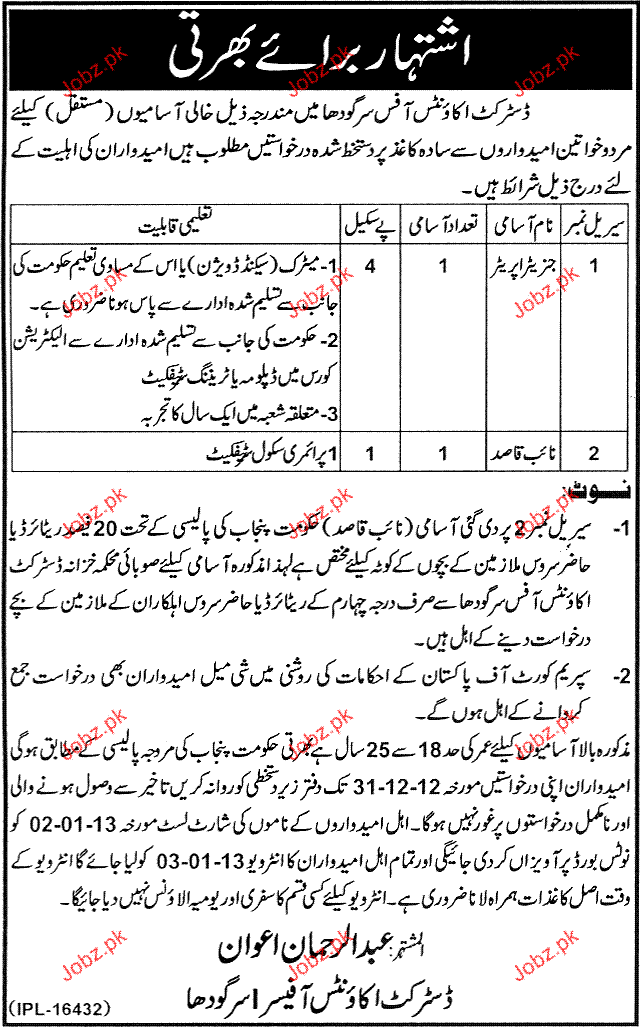 اشتہار برائے بھرتی
ڈسٹرکٹ اکاؤنٹس آفس سرگودھا میں مندرجہ ذیل خالی آسامیوں (مستقل) کیلئے
مرد و خواتین امیدواروں سے سادہ کاغذ پر دستخط شدہ درخواستیں مطلوب ہیں امیدواران کی اہلیت کے
لئے درج ذیل شرائط ہیں۔
سیریل نمبر نام آسامی تعداد آسامی پے سکیل تعلیمی قابلیت
1 جنریٹر اپریٹر 1 4 1- میٹرک (سیکنڈ ڈویژن) یا اس کے مساوی تعلیم حکومت کی
جانب سے تسلیم شدہ ادارے سے پاس ہونا ضروری ہے۔
2- حکومت کی جانب سے تسلیم شدہ ادارے سے الیکٹریشن
کورس میں ڈپلومہ یا ٹریننگ سرٹیفکیٹ
3- متعلقہ شعبہ میں ایک سال کا تجربہ
2 نائب قاصد 1 1 1 پرائمری سکول سرٹیفکیٹ
نوٹ:
1- سیریل نمبر 2 پر دی گئی آسامی (نائب قاصد) حکومت پنجاب کی پالیسی کے تحت 20 فیصد ریٹائرڈ یا
حاضر سروس ملازمین کے بچوں کے کوٹہ کیلئے مختص ہے لہذا مذکورہ آسامی کیلئے صوبائی محکمہ خزانہ ڈسٹرکٹ
اکاؤنٹس آفس سرگودھا سے صرف درجہ چہارم کے ریٹائرڈ یا حاضر سروس اہلکاران کے ملازمین کے بچے
درخواست دینے کے اہل ہیں۔
2- سپریم کورٹ آف پاکستان کے احکامات کی روشنی میں شی میل امیدواران بھی درخواست جمع
کروانے کے اہل ہوں گے۔
مذکورہ بالا آسامیوں کیلئے عمر کی حد 18 سے 25 سال ہے بھرتی حکومت پنجاب کی مروجہ پالیسی کے مطابق ہوگی
امیدواران اپنی درخواستیں مورخہ 31-12-12 تک دفتر زیر دستخطی کو روانہ کریں تاخیر سے وصول ہونے والی
اور نامکمل درخواستوں پر غور نہیں ہوگا۔ اہل امیدواروں کے ناموں کی شارٹ لسٹ مورخہ 02-01-13 کو
نوٹس بورڈ پر آویزاں کر دی جائیگی اور تمام اہل امیدواران کا انٹرویو 03-01-13 کو لیا جائے گا انٹرویو کے
وقت اصل کاغذات ہمراہ لانا ضروری ہے۔ انٹرویو کیلئے کسی قسم کا سفری اور یومیہ الاؤنس نہیں دیا جائیگا۔
المشتہر: عبدالرحمان اعوان
ڈسٹرکٹ اکاؤنٹس آفیسر I سرگودھا
(IPL-16432)
Jobz.pk